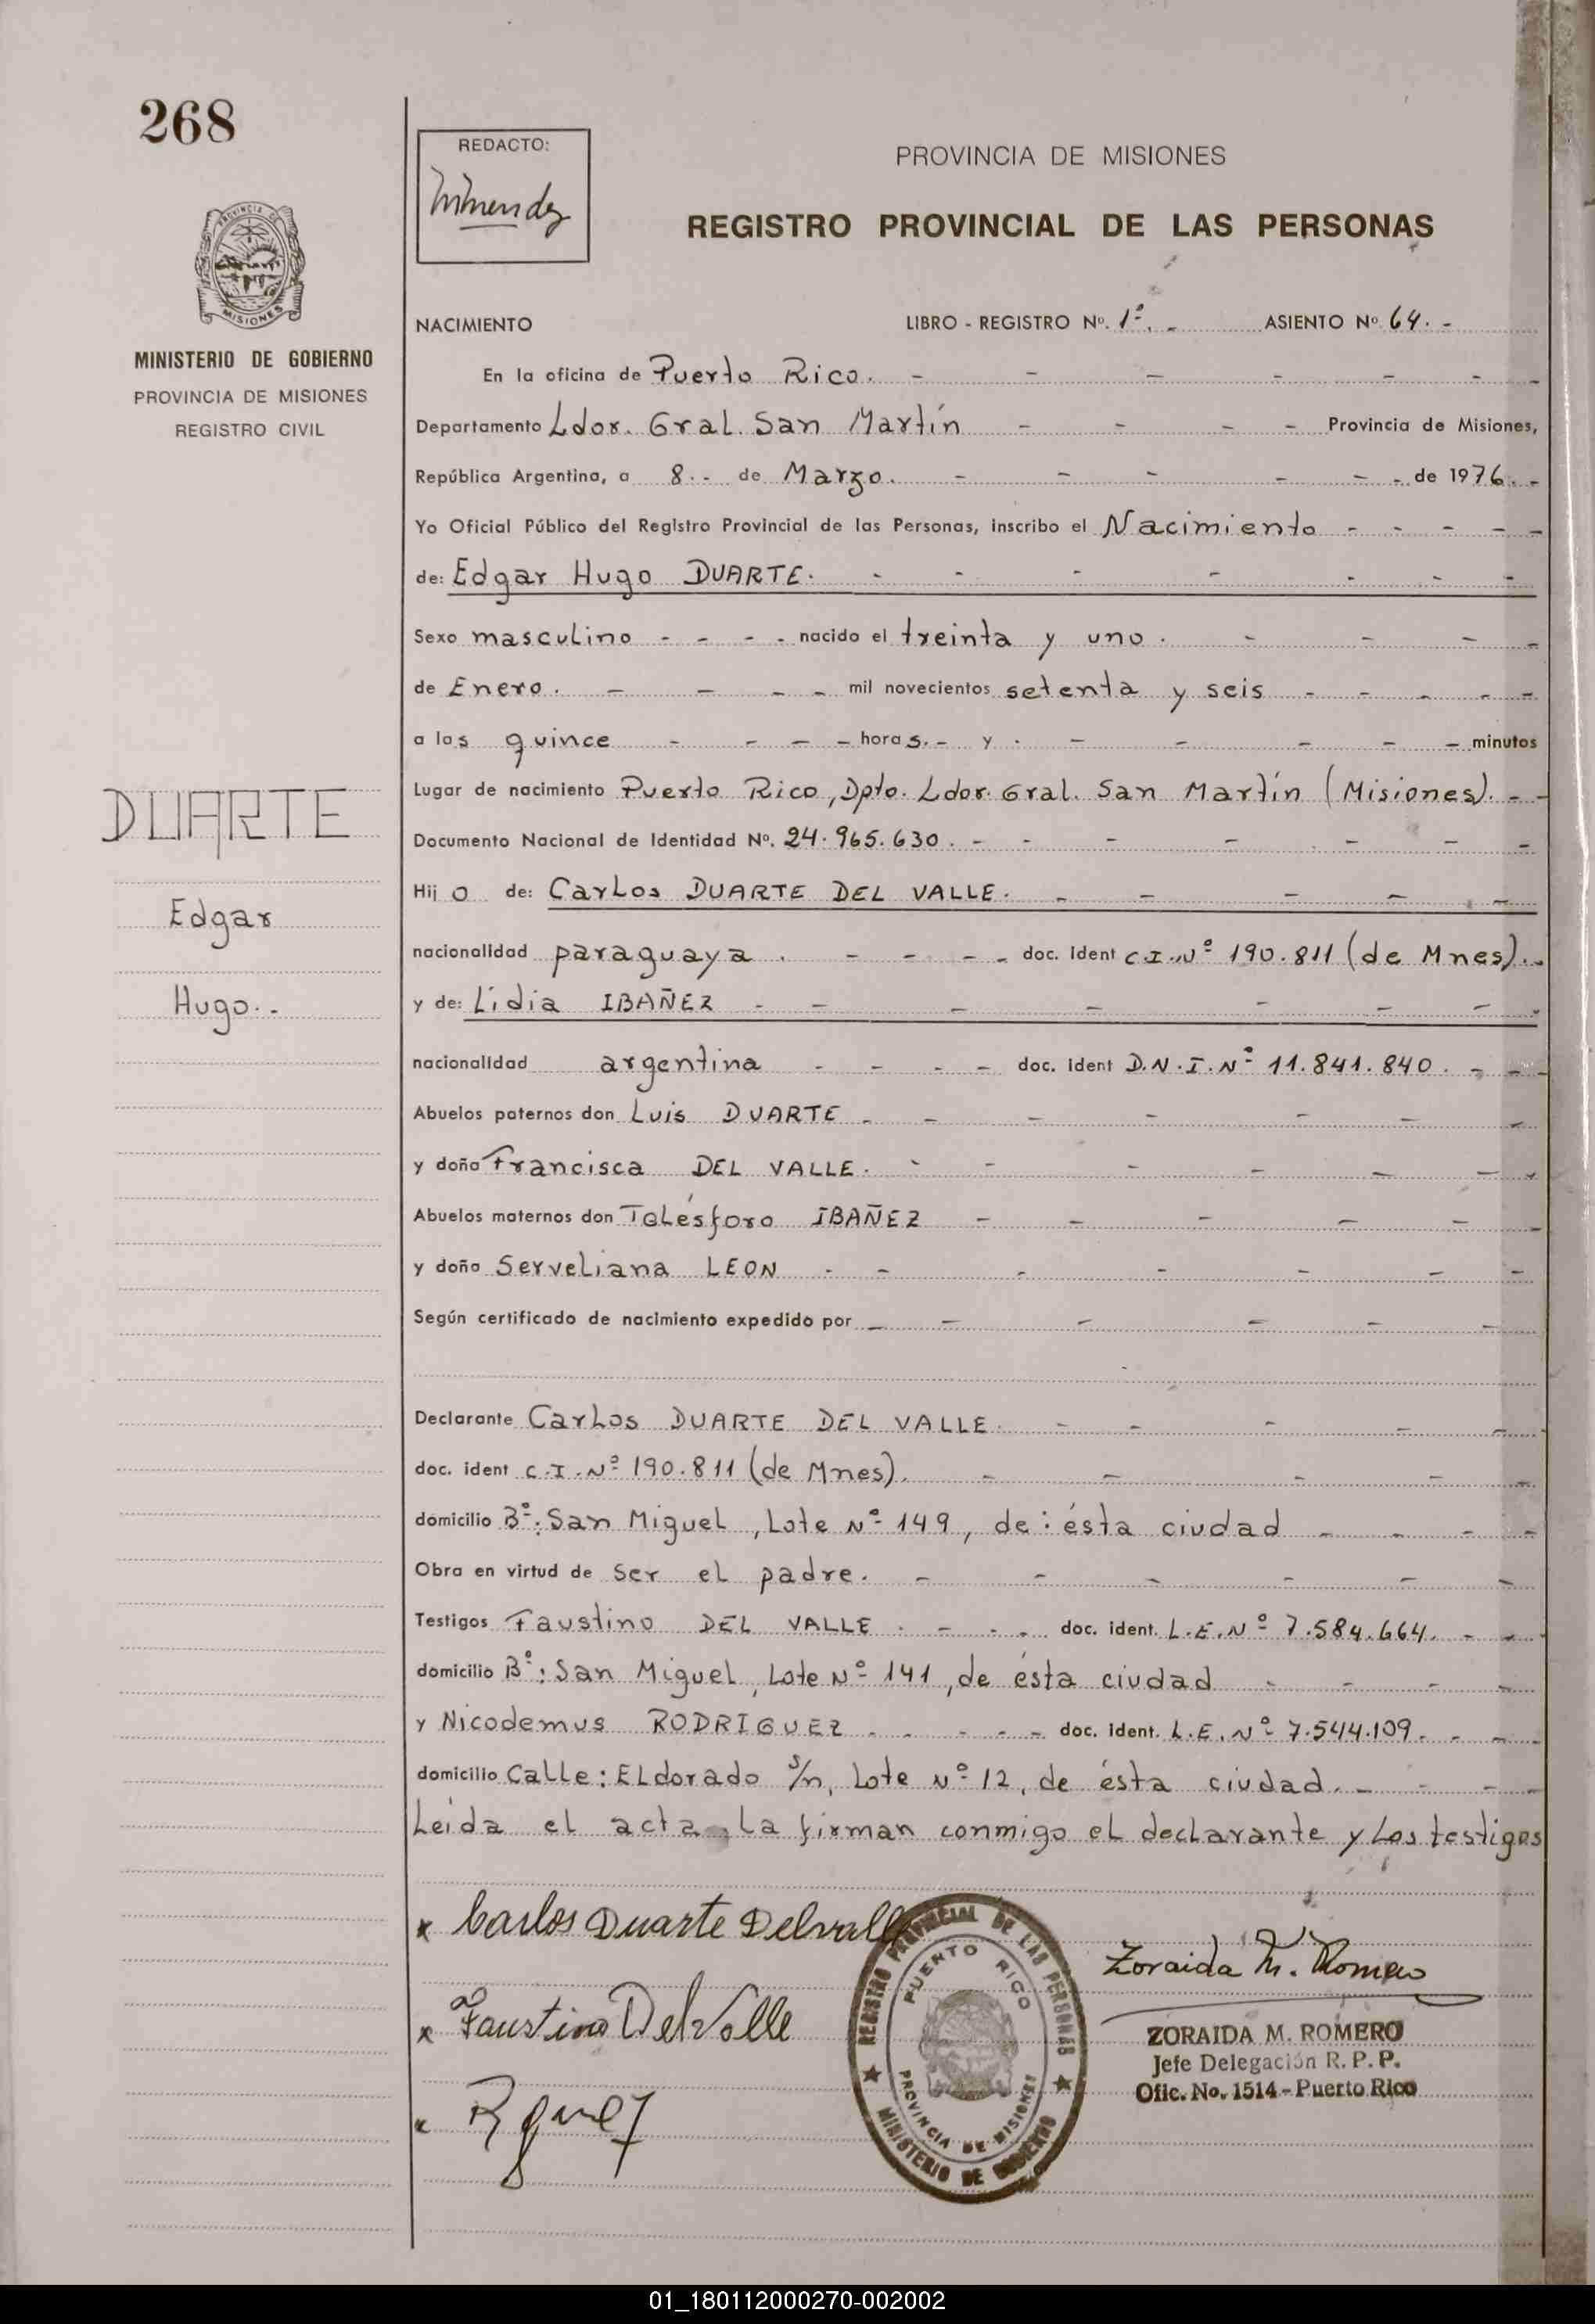 268
REDACTO:
PROVINCIA DE MISIONES
REGISTRO PROVINCIAL DE LAS PERSONAS
MISIONES
MINISTERIO DE GOBIERNO
PROVINCIA DE MISIONES
REGISTRO CIVIL
NACIMIENTO LIBRO - REGISTRO Nº. 1º. - ASIENTO Nº 64. -
En la oficina de Puerto Rico. - - - - - -
Departamento Ldor. Gral. San Martín - - - - Provincia de Misiones,
República Argentina, a 8.- de Marzo. - - - - - - de 1976. -
Yo Oficial Público del Registro Provincial de las Personas, inscribo el Nacimiento - - - - -
de: Edgar Hugo DUARTE. - - - - - - -
Sexo masculino - - - - nacido el treinta y uno. - - - -
de Enero. - - - - mil novecientos setenta y seis - - - - -
a las quince - - - - horas.- y . - - - - - minutos
Lugar de nacimiento Puerto Rico, Dpto. Ldor. Gral. San Martín (Misiones). - -
Documento Nacional de Identidad Nº. 24.965.630. - - - - - - -
Hijo de: Carlos DUARTE DEL VALLE. - - - - -
nacionalidad paraguaya. - - - - doc. ident C.I.Nº 190.811 (de Mnes).-
y de: Lidia IBAÑEZ - - - - - - -
nacionalidad argentina - - - - doc. ident D.N.I.Nº 11.841.840. - - -
Abuelos paternos don Luis DUARTE - - - - - - -
y doña Francisca DEL VALLE. - - - - - - -
Abuelos maternos don Telésforo IBAÑEZ - - - - - -
y doña Serveliana LEON - - - - - - - -
Según certificado de nacimiento expedido por - - - - - -
Declarante Carlos DUARTE DEL VALLE. - - - - -
doc. ident C.I.Nº 190.811 (de Mnes). - - - - -
domicilio Bº: San Miguel, Lote Nº 149, de: ésta ciudad - - - -
Obra en virtud de ser el padre. - - - - - -
Testigos Faustino DEL VALLE - - - - doc. ident. L.E.Nº 7.584.664. - -
domicilio Bº: San Miguel, Lote Nº 141, de ésta ciudad - - - -
y Nicodemus RODRIGUEZ - - - - - doc. ident. L.E.Nº 7.544.109. - - -
domicilio Calle: ELdorado s/n, Lote Nº 12, de ésta ciudad. - - - -
Leída el acta, La firman conmigo el declarante y Los testigos
DUARTE
Edgar
Hugo.-
x Carlos Duarte Delvalle
x Faustino DelValle
x
REGISTRO PROVINCIAL DE LAS PERSONAS
PUERTO RICO
PROVINCIA DE MISIONES
MINISTERIO DE GOBIERNO
Zoraida M. Romero
ZORAIDA M. ROMERO
Jefe Delegación R. P. P.
Ofic. No. 1514 - Puerto Rico
01_180112000270-002002